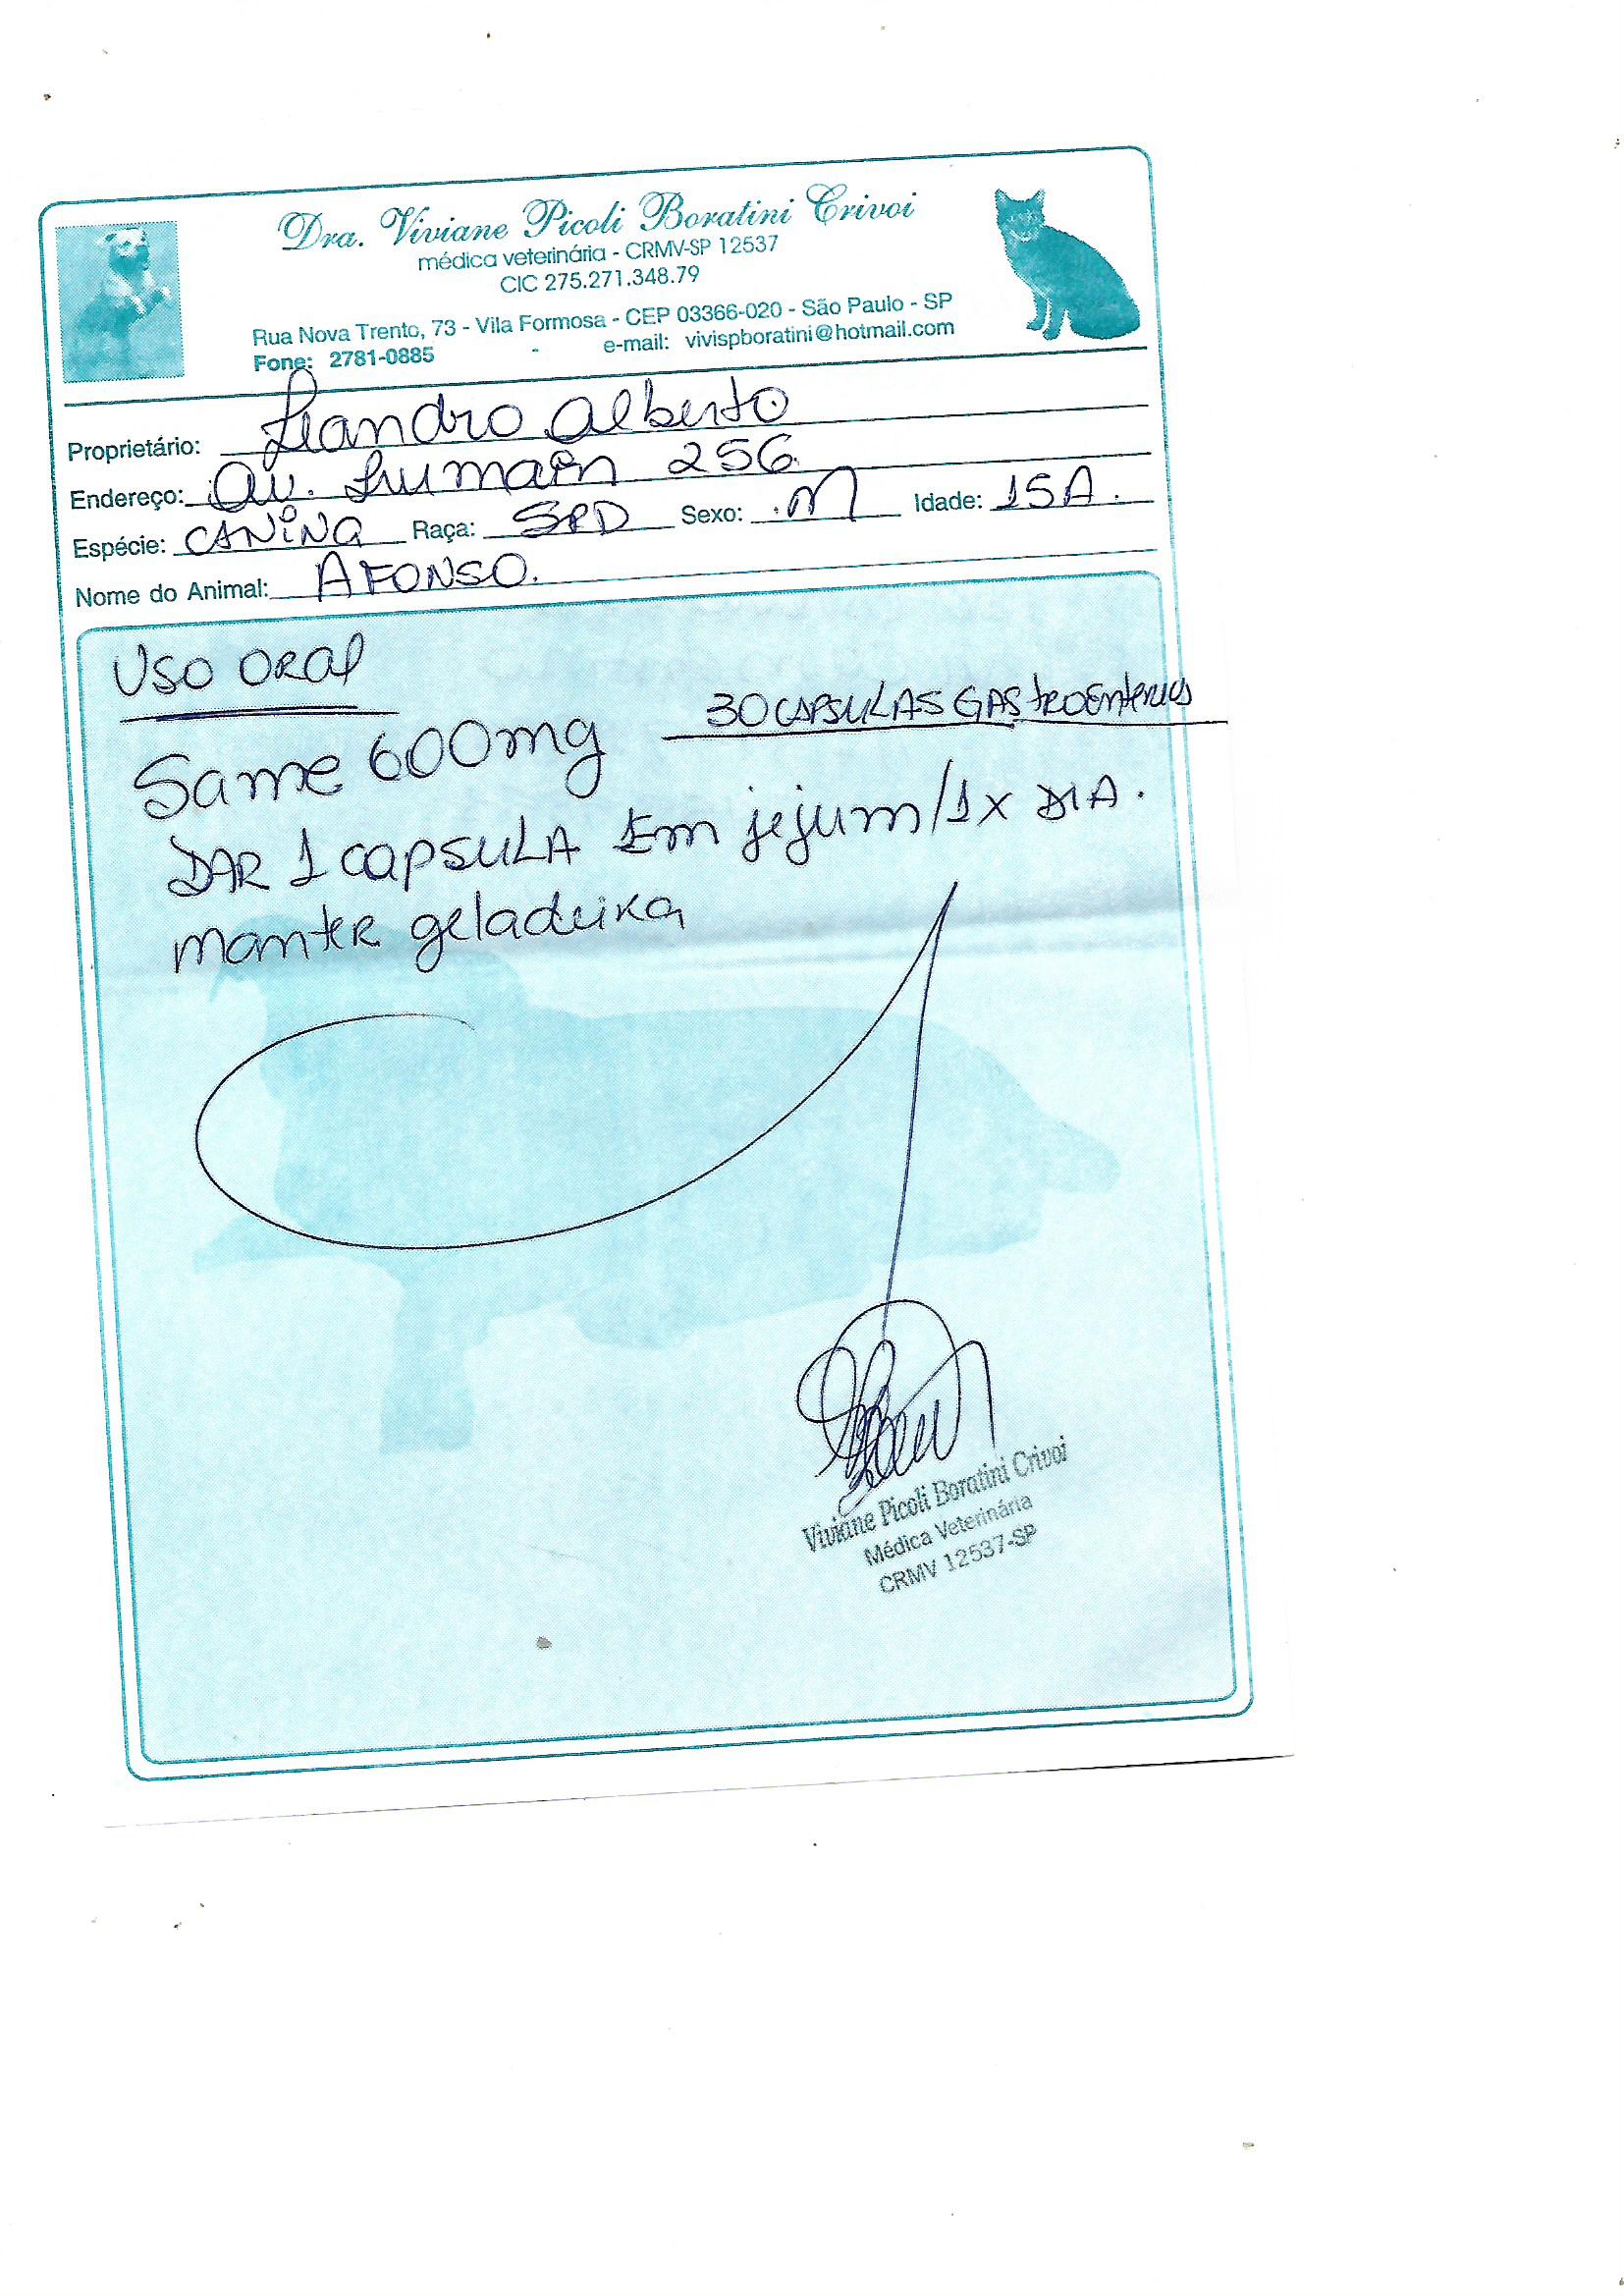 Dra. Viviane Picoli Boratini Crivoi
médica veterinária - CRMV-SP 12537
CIC 275.271.348.79
Rua Nova Trento, 73 - Vila Formosa - CEP 03366-020 - São Paulo - SP
Fone: 2781-0885 - e-mail: vivispboratini@hotmail.com
Proprietário: Leandro Alberto
Endereço: Av. 256
Espécie: CANINA Raça: SRD Sexo: M Idade: 15A.
Nome do Animal: AFONSO.
USO ORAL
Same 600mg 30 CAPSULAS GASTROENTERICAS
DAR 1 CAPSULA Em jejum/1x DIA.
manter geladeira
Viviane Picoli Boratini Crivoi
Médica Veterinária
CRMV 12537-SP